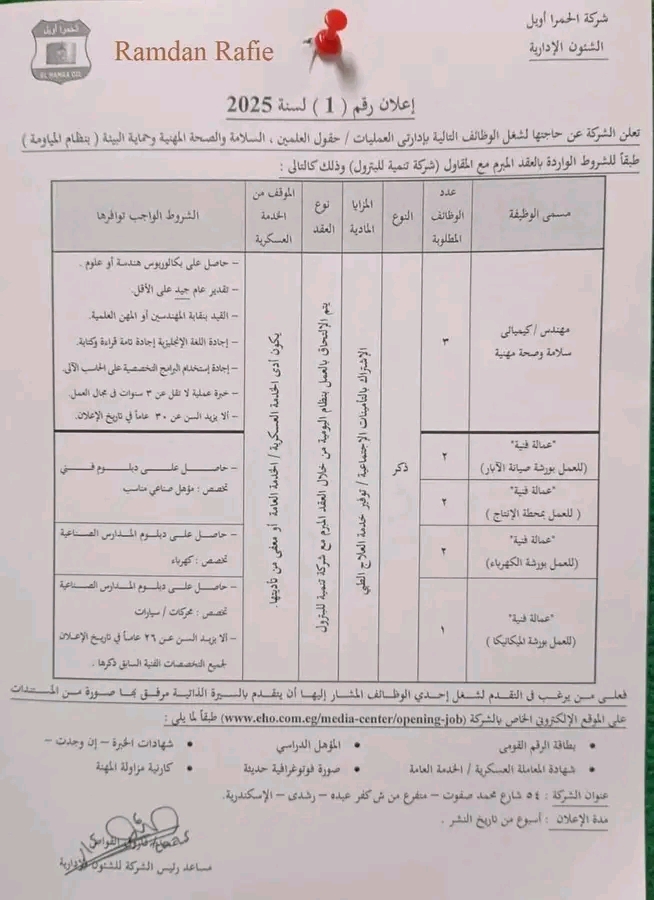 الحمرا أويل
EL HAMRA OIL
Ramdan Rafie
شركة الحمرا أويل
الشئون الإدارية
إعلان رقم ( 1 ) لسنة 2025
تعلن الشركة عن حاجتها لشغل الوظائف التالية بإدارتى العمليات / حقول العلمين ، السلامة والصحة المهنية وحماية البيئة ( بنظام المياومة )
طبقاً للشروط الواردة بالعقد المبرم مع المقاول (شركة تنمية للبترول) وذلك كالتالى :
مسمى الوظيفة
عدد الوظائف المطلوبة
النوع
المزايا المادية
نوع العقد
الموقف من الخدمة العسكرية
الشروط الواجب توافرها
مهندس / كيميائى
سلامة وصحة مهنية
٣
ذكر
الإشتراك بالتأمينات الإجتماعية / توفير خدمة العلاج الطبي
يتم الإلتحاق بالعمل بنظام اليومية من خلال العقد المبرم مع شركة تنمية للبترول
يكون أدى الخدمة العسكرية / الخدمة العامة أو معفى من تأديتها.
- حاصل على بكالوريوس هندسة أو علوم .
- تقدير عام جيد على الأقل.
- القيد بنقابة المهندسين أو المهن العلمية.
- إجادة اللغة الإنجليزية إجادة تامة قراءة وكتابة.
- إجادة إستخدام البرامج التخصصية على الحاسب الآلى.
- خبرة عملية لا تقل عن ٣ سنوات فى مجال العمل.
- ألا يزيد السن عن ٣٠ عاماً في تاريخ الإعلان.
"عمالة فنية"
(للعمل بورشة صيانة الآبار)
٢
- حاصل على دبلوم فني
تخصص : مؤهل صناعي مناسب
"عمالة فنية"
( للعمل بمحطة الإنتاج )
٢
"عمالة فنية"
(للعمل بورشة الكهرباء)
٢
- حاصل على دبلوم المدارس الصناعية
تخصص : كهرباء
"عمالة فنية"
(للعمل بورشة الميكانيكا)
١
- حاصل على دبلوم المدارس الصناعية
تخصص : محركات / سيارات
- ألا يزيد السن عن ٢٦ عاماً في تاريخ الإعلان
لجميع التخصصات الفنية السابق ذكرها .
فعلى من يرغب فى التقدم لشغل إحدي الوظائف المشار إليها أن يتقدم بالسيرة الذاتية مرفق بها صورة من المستندات
على الموقع الإلكتروني الخاص بالشركة (www.eho.com.eg/media-center/opening-job) طبقاً لما يلى :
• بطاقة الرقم القومى
• المؤهل الدراسي
• شهادات الخبرة – إن وجدت –
• شهادة المعاملة العسكرية / الخدمة العامة
• صورة فوتوغرافية حديثة
• كارنية مزاولة المهنة
عنوان الشركة : ٥٤ شارع محمد صفوت – متفرع من ش كفر عبده – رشدى – الإسكندرية.
مدة الإعلان : أسبوع من تاريخ النشر .
مساعد رئيس الشركة للشئون الإدارية